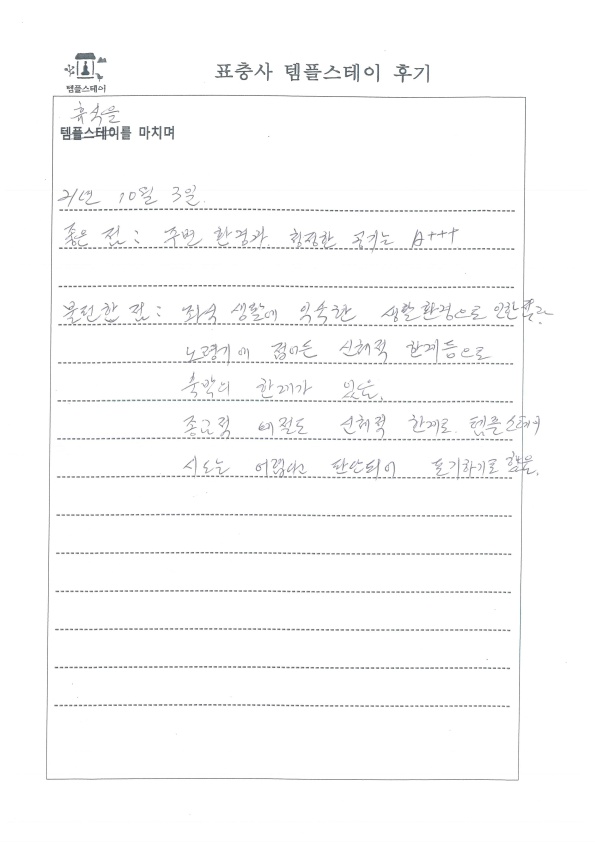 템플스테이
표충사 템플스테이 후기
휴식을
템플스테이를 마치며
21년 10월 3일.
좋은 점 : 주변 환경과 청정한 공기는 A+++
불편한 점 : 좌식 생활에 익숙한 생활환경으로 인한
노령기에 접어든 신체적 한계등으로
숙박의 한계가 있음.
종교적 예절도 신체적 한계로. 템플스테이
시도는 어렵다고 판단되어 포기하기로 했음.